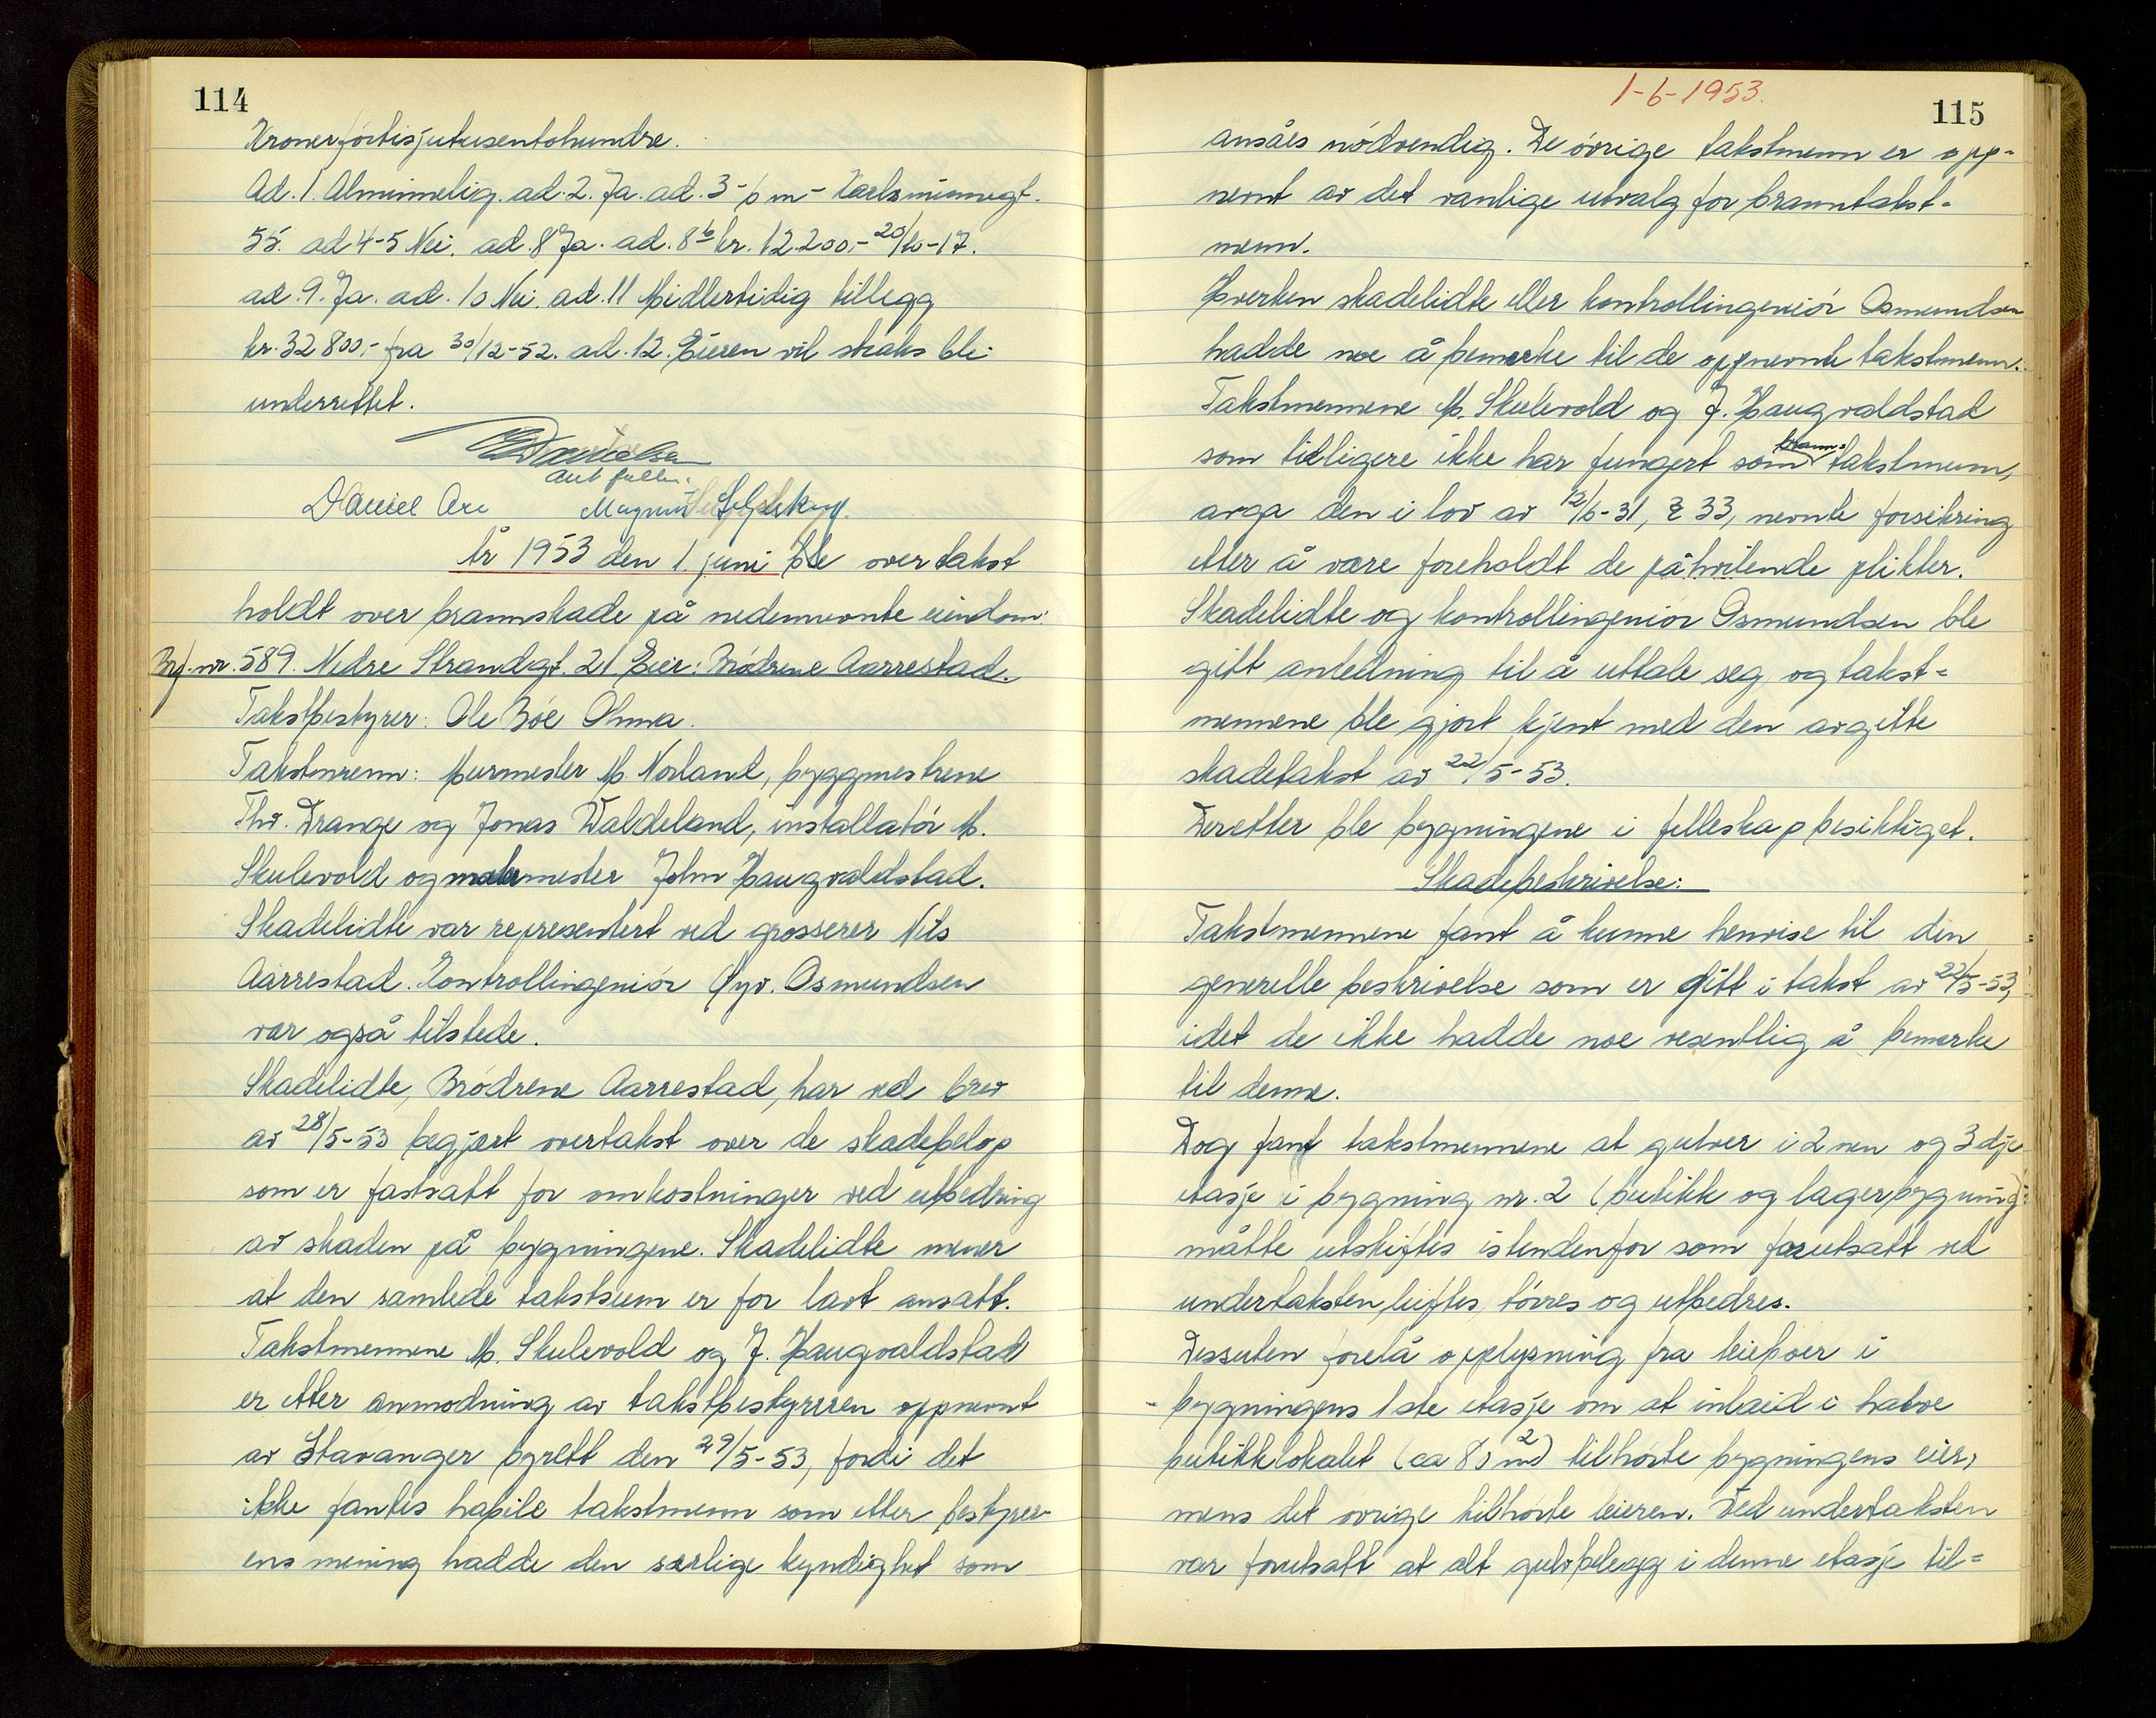 114
Kronerførtisjutusentohundre.
Ad. 1. Alminnelig. ad. 2. Ja. ad. 3 - 6 m - Karlsminnegt.
55. ad 4-5 Nei. ad. 8 Ja. ad. 8b kr. 12.200,- 20/10-17.
ad. 9. Ja. ad. 10 Nei. ad. 11 Midlertidig tillegg
kr. 32 800,- fra 30/12-52. ad. 12. Eieren vil straks bli
underrettet.
Danielsen
Daniel Are Magnus
År 1953 den 1. juni ble overtakst
holdt over brannskade på nedennevnte eiendom:
Brf.nr. 589. Nedre Strandgt. 21 Eier: Brødrene Aarrestad.
Takstbestyrer: Ole Bøe Ohma.
Takstmenn: Murmester M. Norland, byggmestrene
Thv. Drange og Jonas Waldeland, installatør M.
Skulevold og malermester John Haugvaldstad.
Skadelidte var representert ved grosserer Nils
Aarrestad. Kontrollingeniør Gyv. Osmundsen
var også tilstede.
Skadelidte, Brødrene Aarrestad, har ved brev
av 28/5-53 begjært overtakst over de skadebeløp
som er fastsatt for omkostninger ved utbedring
av skaden på bygningene. Skadelidte mener
at den samlede takstsum er for lavt ansatt.
Takstmennene M. Skulevold og J. Haugvaldstad
er etter anmodning av takstbestyreren oppnevnt
av Stavanger byrett den 29/5-53, fordi det
ikke fantes habile takstmenn som etter bestyrer-
ens mening hadde den særlige kyndighet som
1-6-1953.
115
ansåes nødvendig. De øvrige takstmenn er opp-
nevnt av det vanlige utvalg for branntakst-
menn.
Hverken skadelidte eller kontrollingeniør Osmundsen
hadde noe å bemerke til de oppnevnte takstmenn.
Takstmennene M. Skulevold og J. Haugvaldstad
som tidligere ikke har fungert som brann-takstmenn,
avga den i lov av 12/6-31, § 33, nevnte forsikring
etter å være foreholdt de påhvilende plikter.
Skadelidte og kontrollingeniør Osmundsen ble
gitt anledning til å uttale seg og takst-
mennene ble gjort kjent med den avgitte
skadetakst av 22/5-53.
Deretter ble bygningene i felleskap besiktiget.
Skadebeskrivelse:
Takstmennene fant å kunne henvise til den
generelle beskrivelse som er gitt i takst av 22/5-53,
idet de ikke hadde noe vesentlig å bemerke
til denne.
Dog fant takstmennene at gulver i 2nen og 3dje
etasje i bygning nr. 2 (butikk og lagerbygning)
måtte utskiftes istendenfor som forutsatt ved
undertaksten, løftes, tørres og utbedres.
Dessuten forelå opplysning fra leieboer i
bygningens 1ste etasje om at inlaid i halve
butikklokalet (ca 80 m2) tilhørte bygningens eier,
mens det øvrige tilhørte leieren. Ved undertaksten
var forutsatt at alt gulvbelegg i denne etasje til-